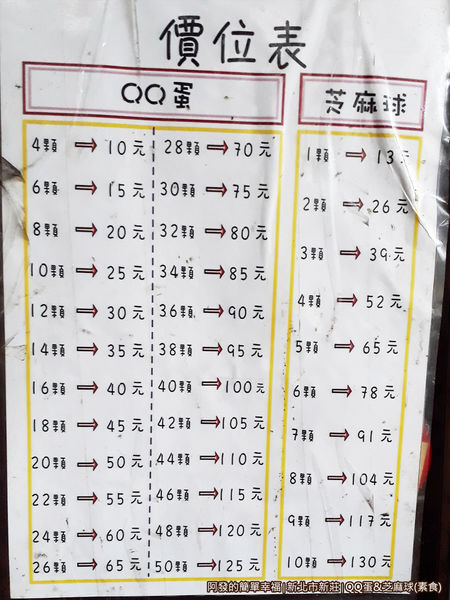 價位表
QQ蛋
4顆 → 10元
6顆 → 15元
8顆 → 20元
10顆 → 25元
12顆 → 30元
14顆 → 35元
16顆 → 40元
18顆 → 45元
20顆 → 50元
22顆 → 55元
24顆 → 60元
26顆 → 65元
28顆 → 70元
30顆 → 75元
32顆 → 80元
34顆 → 85元
36顆 → 90元
38顆 → 95元
40顆 → 100元
42顆 → 105元
44顆 → 110元
46顆 → 115元
48顆 → 120元
50顆 → 125元
芝麻球
1顆 → 13元
2顆 → 26元
3顆 → 39元
4顆 → 52元
5顆 → 65元
6顆 → 78元
7顆 → 91元
8顆 → 104元
9顆 → 117元
10顆 → 130元
阿發的簡單幸福|新北市新莊|QQ蛋&芝麻球(素食)